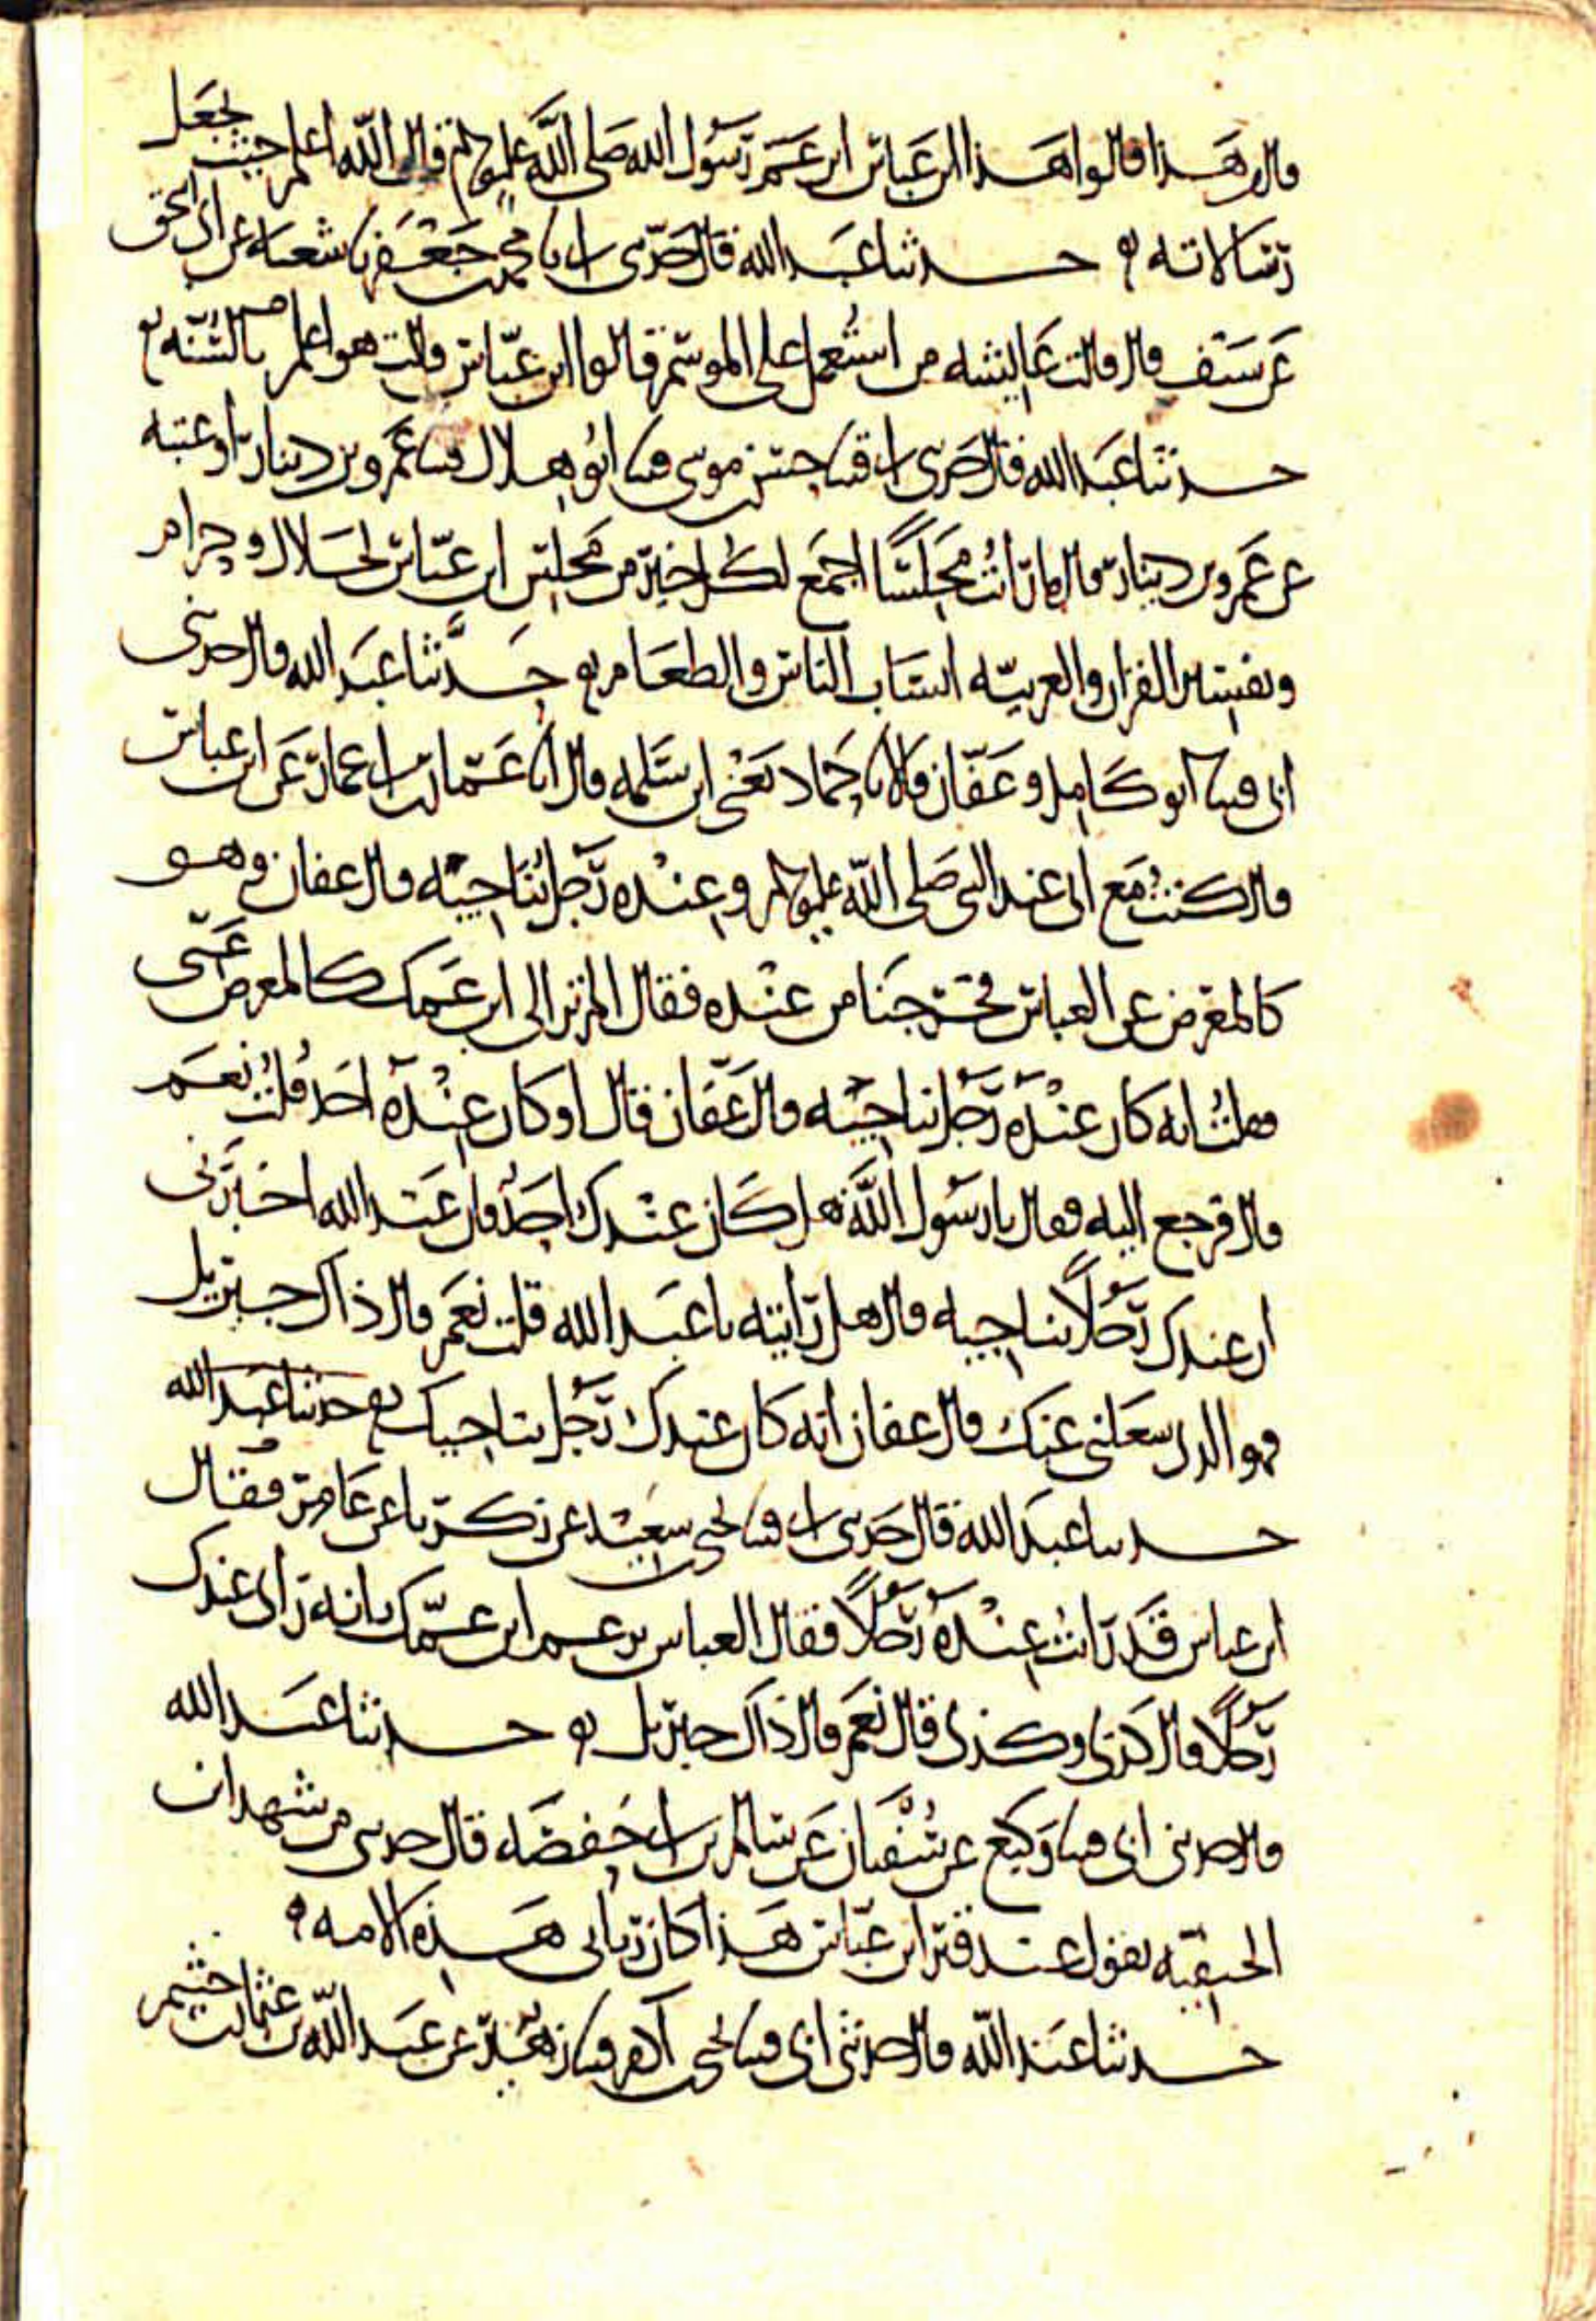 قال من هذا قالوا هذا ابن عباس ابن عم رسول الله صلى الله عليه وسلم قال الله اعلم حيث يجعل
رسالاته حدثنا عبد الله قال حدثني ابي نا محمد بن جعفر نا شعبة عن ابي اسحق
عن سيف قال قالت عايشه من استعمل على الموسم قالوا ابن عباس قالت هو اعلم بالسنه
حدثنا عبد الله قال حدثني ابي قثنا حسن بن موسى قثنا ابو هلال قثنا عمرو بن دينار او عتبه
عن عمرو بن دينار قال ما رايت مجلسا اجمع لكل خير من مجلس ابن عباس لحلال وحرام
وتفسير القران والعربيه انساب الناس والطعام حدثنا عبد الله قال حدثني
ابي قثنا ابو كامل وعفان قالا نا حماد يعني ابن سلمه قال انا عمار بن ابي عمار عن ابن عباس
قال كنت مع ابي عند النبي صلى الله عليه وسلم وعنده رجل يناجيه قال عفان وهو
كالمعرض عن العباس فخرجنا من عنده فقال الم تر الى ابن عمك كالمعرض عني
فقلت انه كان عنده رجل يناجيه قال عفان قال او كان عنده احد قلت نعم
قال فرجع اليه فقال يا رسول الله هل كان عندك احد فان عبد الله اخبرني
ان عندك رجلا يناجيه قال هل رايته يا عبد الله قلت نعم قال ذاك جبريل
فهو الذي شغلني عنك قال عفان انه كان عندك رجل يناجيك حدثنا عبد الله
حدثنا عبد الله قال حدثني ابي قثنا يحيى بن سعيد عن زكريا عن عامر فقال
ابن عباس قد رايت عنده رجلا فقال العباس يزعم ابن عمك بانه راى عندك
رجلا قال كذى وكذى قال نعم قال ذاك جبريل حدثنا عبد الله
قال حدثني ابي قثنا وكيع عن سفيان عن سالم بن ابي حفصه قال حدثني من شهد ابن
الحنيفيه يقول عند قبر ابن عباس هذا كان رباني هذه الامه
حدثنا عبد الله قال حدثني ابي قثنا يحيى بن آدم قثنا زهير عن عبد الله بن عثمان بن خثيم